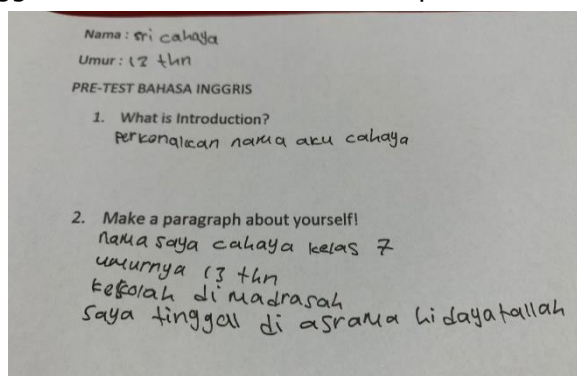 Nama : sri cahaya
Umur : 13 thn
PRE-TEST BAHASA INGGRIS
1. What is Introduction?
perkenalkan nama aku cahaya
2. Make a paragraph about yourself!
nama saya cahaya kelas 7
umurnya 13 thn
di madrasah
saya tinggal di asrama hidayatallah